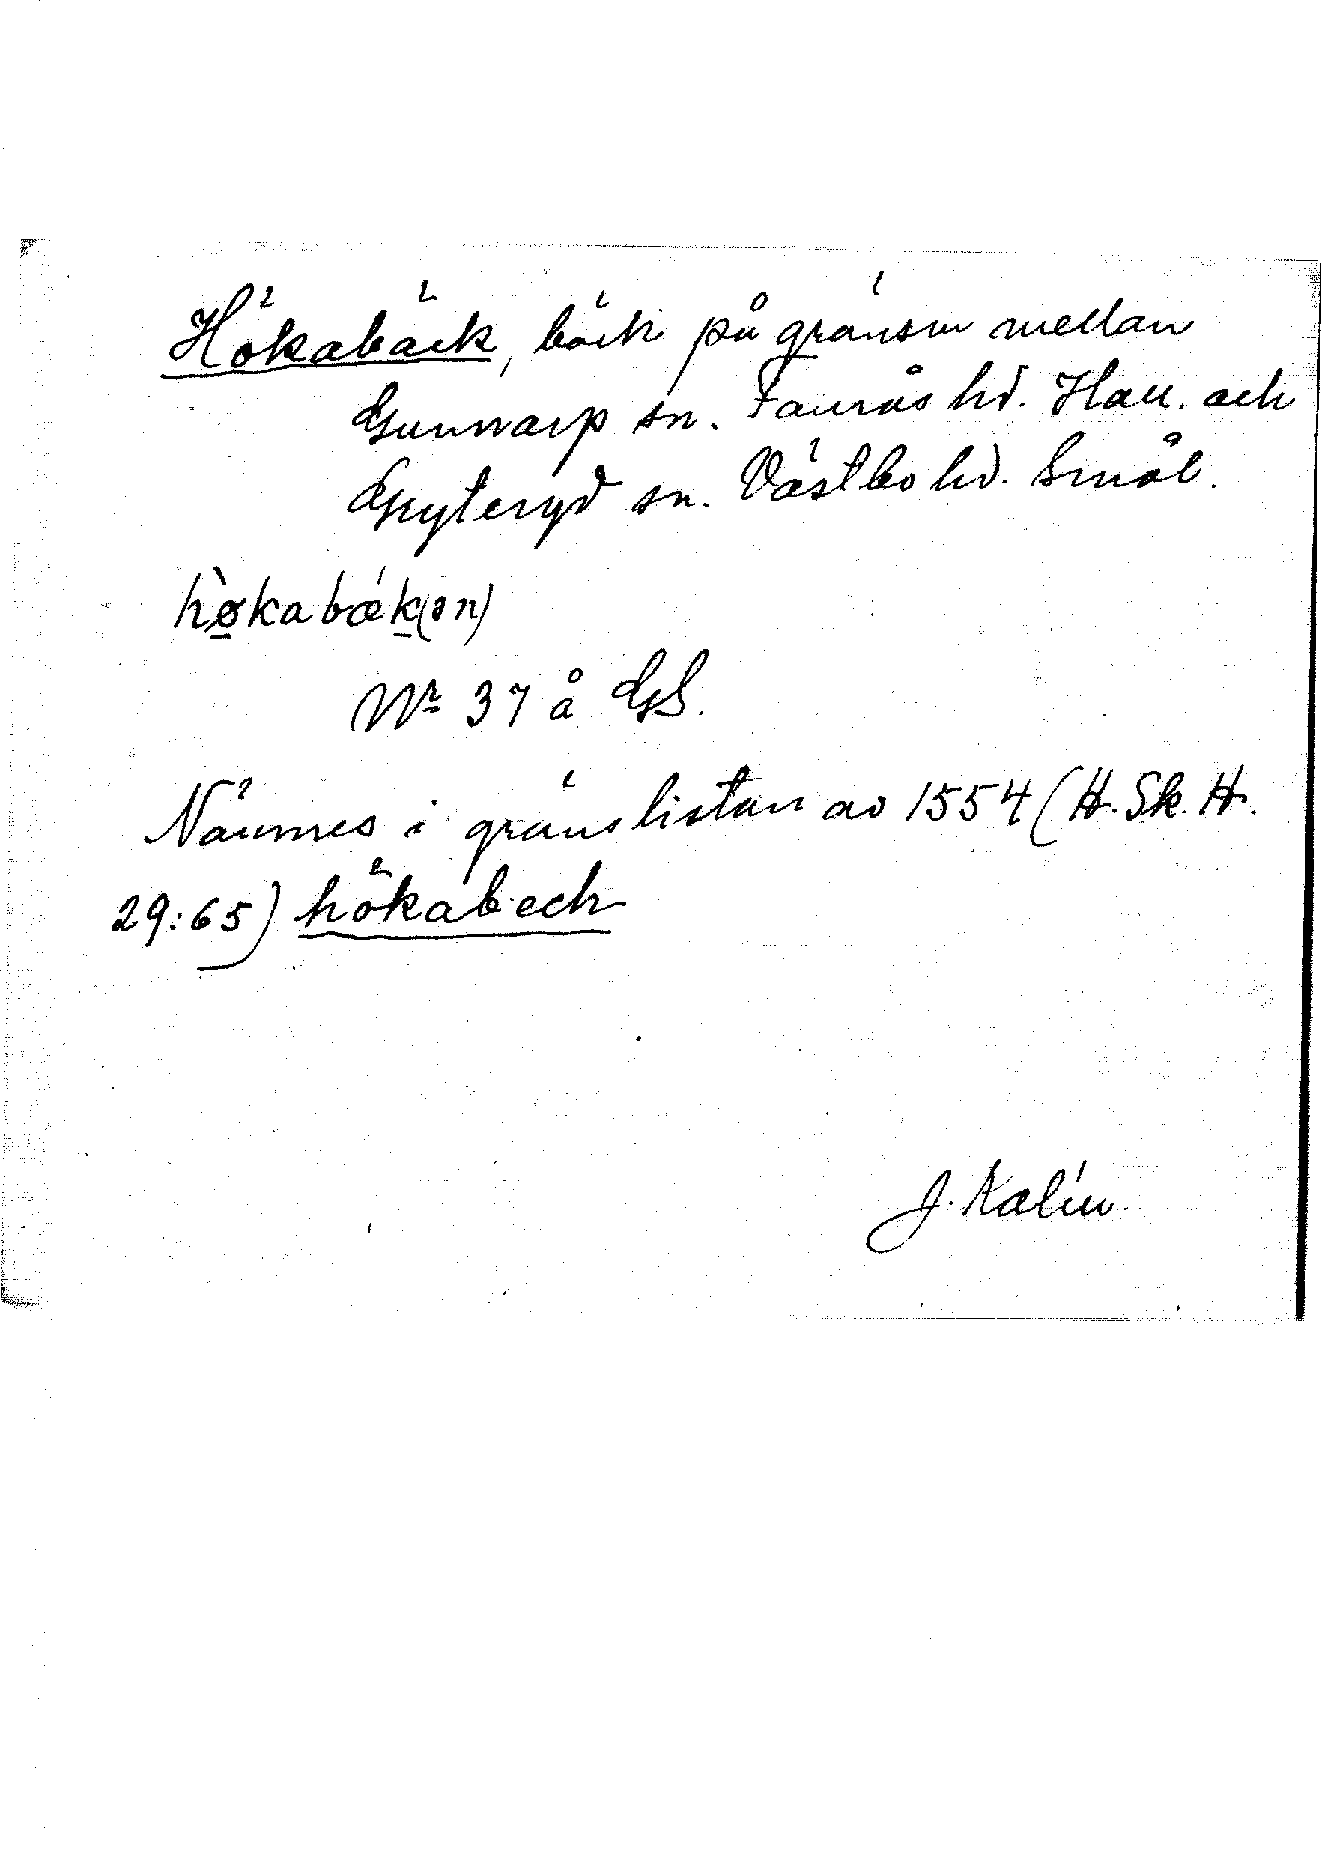 Hökabäck, bäck på gränsen mellan
Gunnarp sn. Faurås hd. Hall. och
Gryteryd sn. Västbo hd. Smål.
hø̀kabǽk(ən)
Nr 37 å GS.
Nämnes i gränslistan av 1554 (H. Sk. H.
29:65) hökabech
J. Kalén